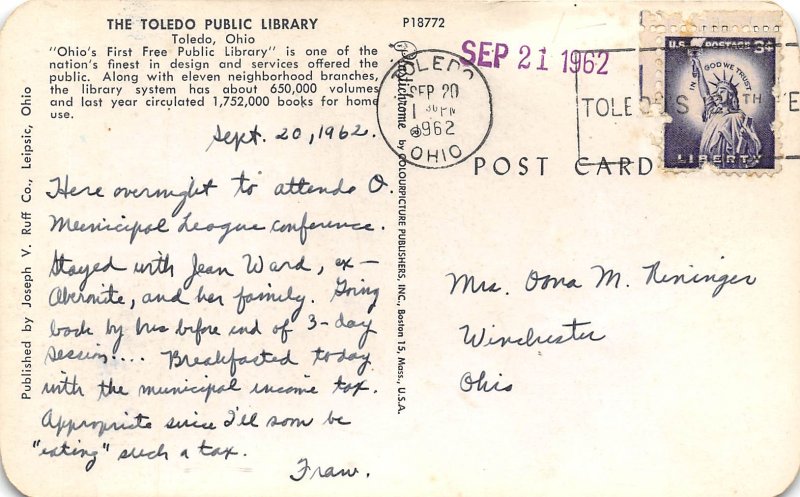 THE TOLEDO PUBLIC LIBRARY
Toledo, Ohio
"Ohio's First Free Public Library" is one of the
nation's finest in design and services offered the
public. Along with eleven neighborhood branches,
the library system has about 650,000 volumes
and last year circulated 1,752,000 books for home
use.
Sept. 20, 1962.
Here overnight to attende O.
Municipal League conference.
Stayed with Jean Ward, ex-
Abernite, and her family. Going
back by bus before end of 3-day
session.... Breakfasted today
with the municipal income tax.
Appropriate since I'll soon be
"eating" such a tax.
Fraw.
Published by Joseph V. Ruff Co., Leipsic, Ohio
Plastichrome by COLOURPICTURE PUBLISHERS, INC., Boston 15, Mass., U.S.A.
P18772
SEP 21 1962
TOLEDO
SEP 20
1 30 PM
1962
OHIO
TOLEDO'S TH
U.S. POSTAGE 3¢
IN GOD WE TRUST
LIBERTY
POST CARD
Mrs. Oona M. Reninger
Winchester
Ohio